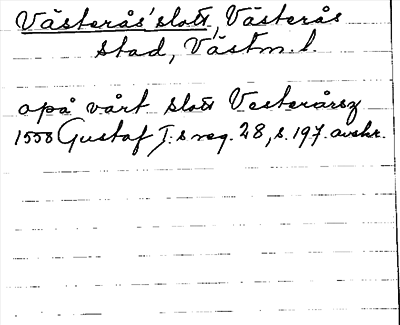 Västerås' slott, Västerås
stad, Västm. l.
opå vårt slott Vesterårsz
1558 Gustaf I:s reg. 28, s. 197. avskr.